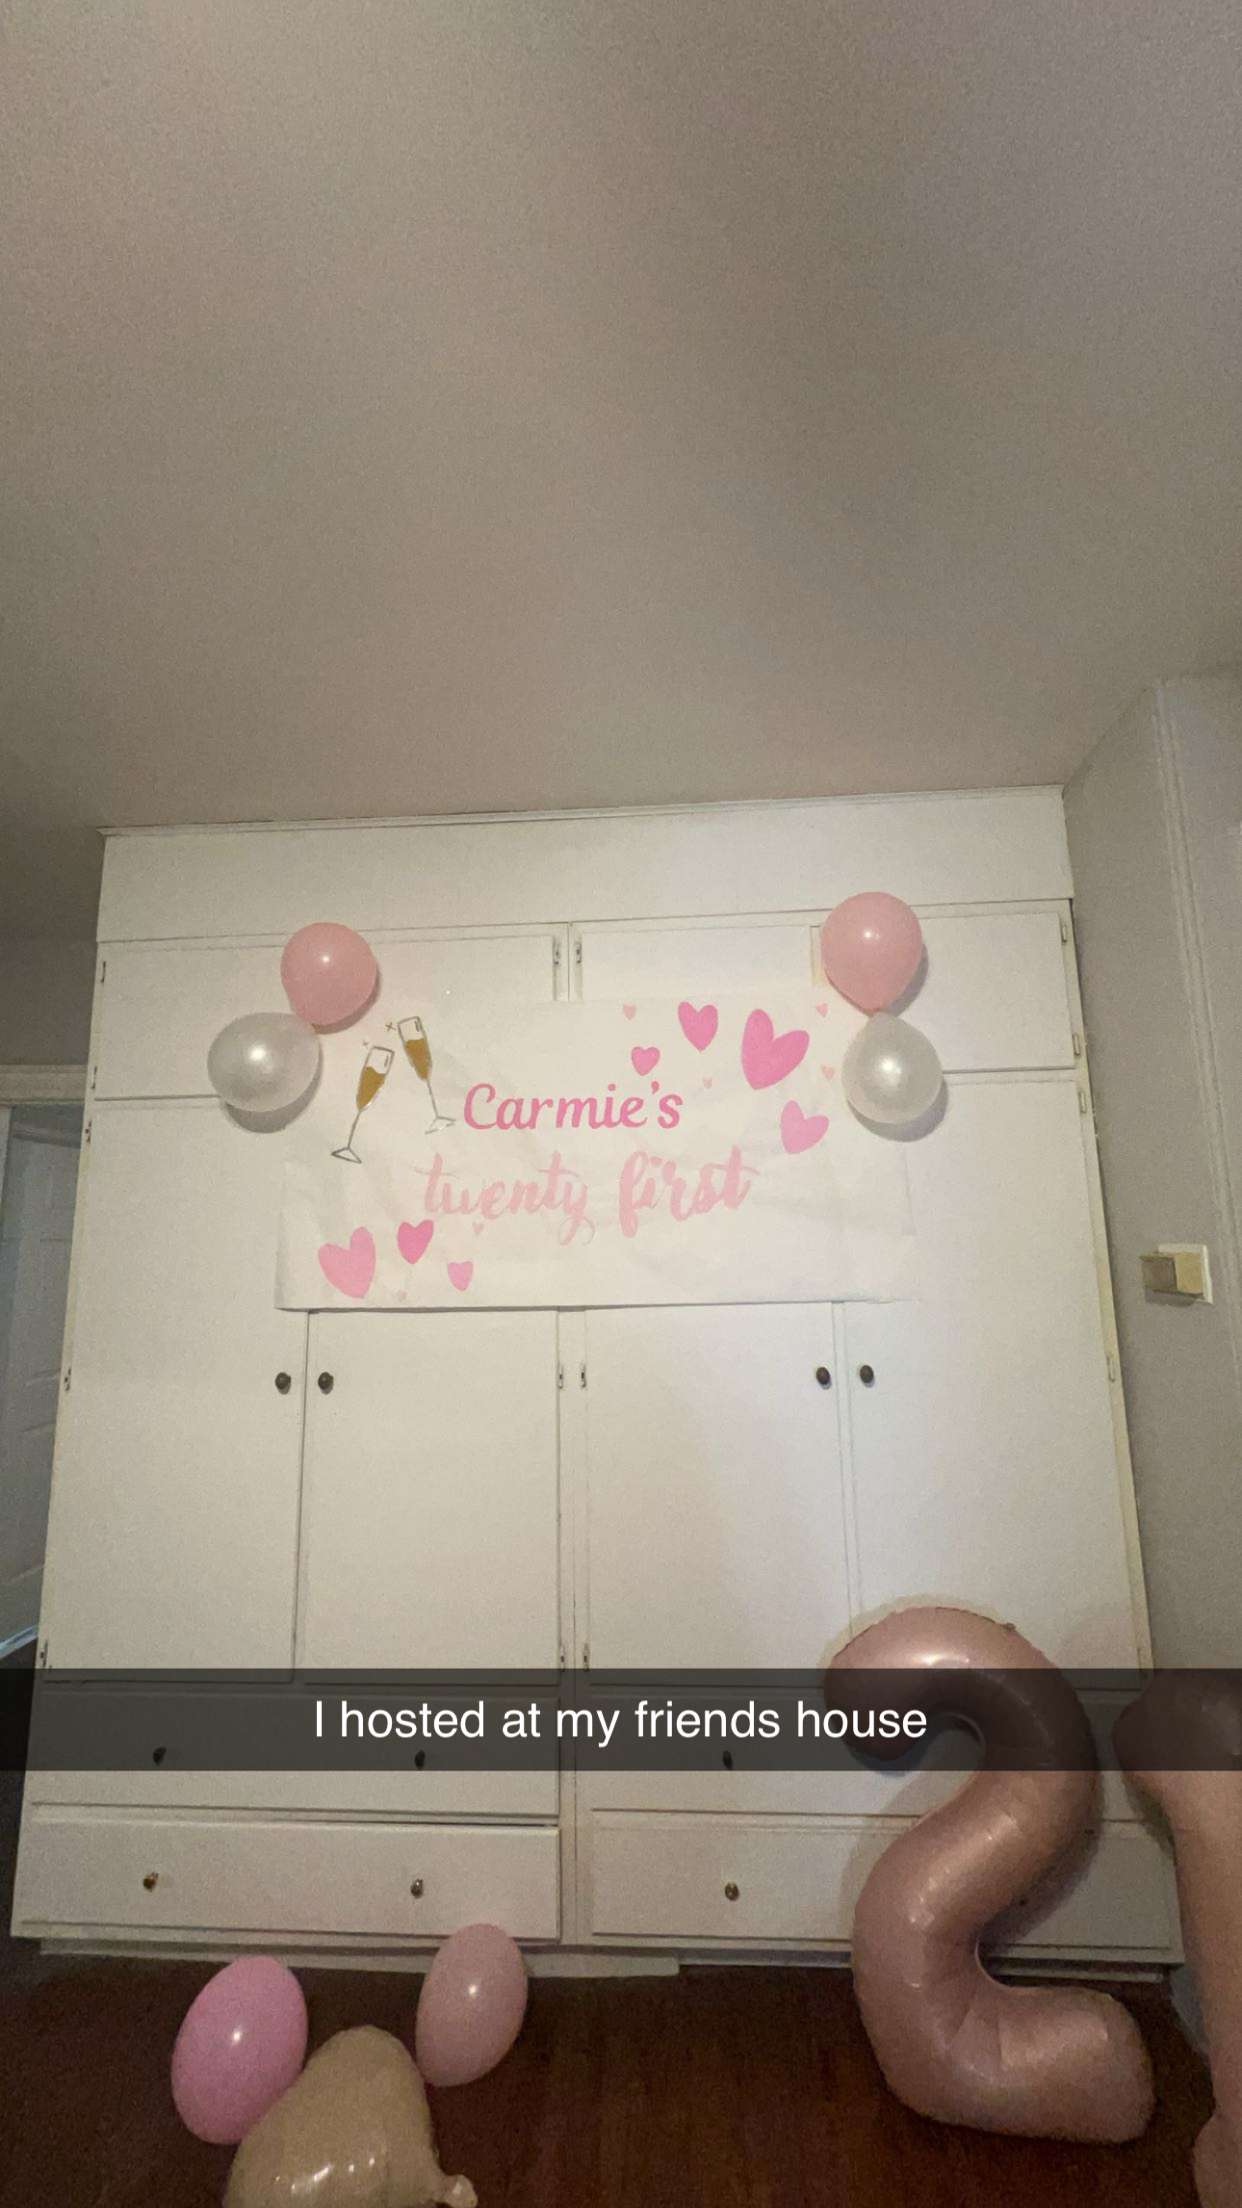 Carmie's
twenty first
I hosted at my friends house
21